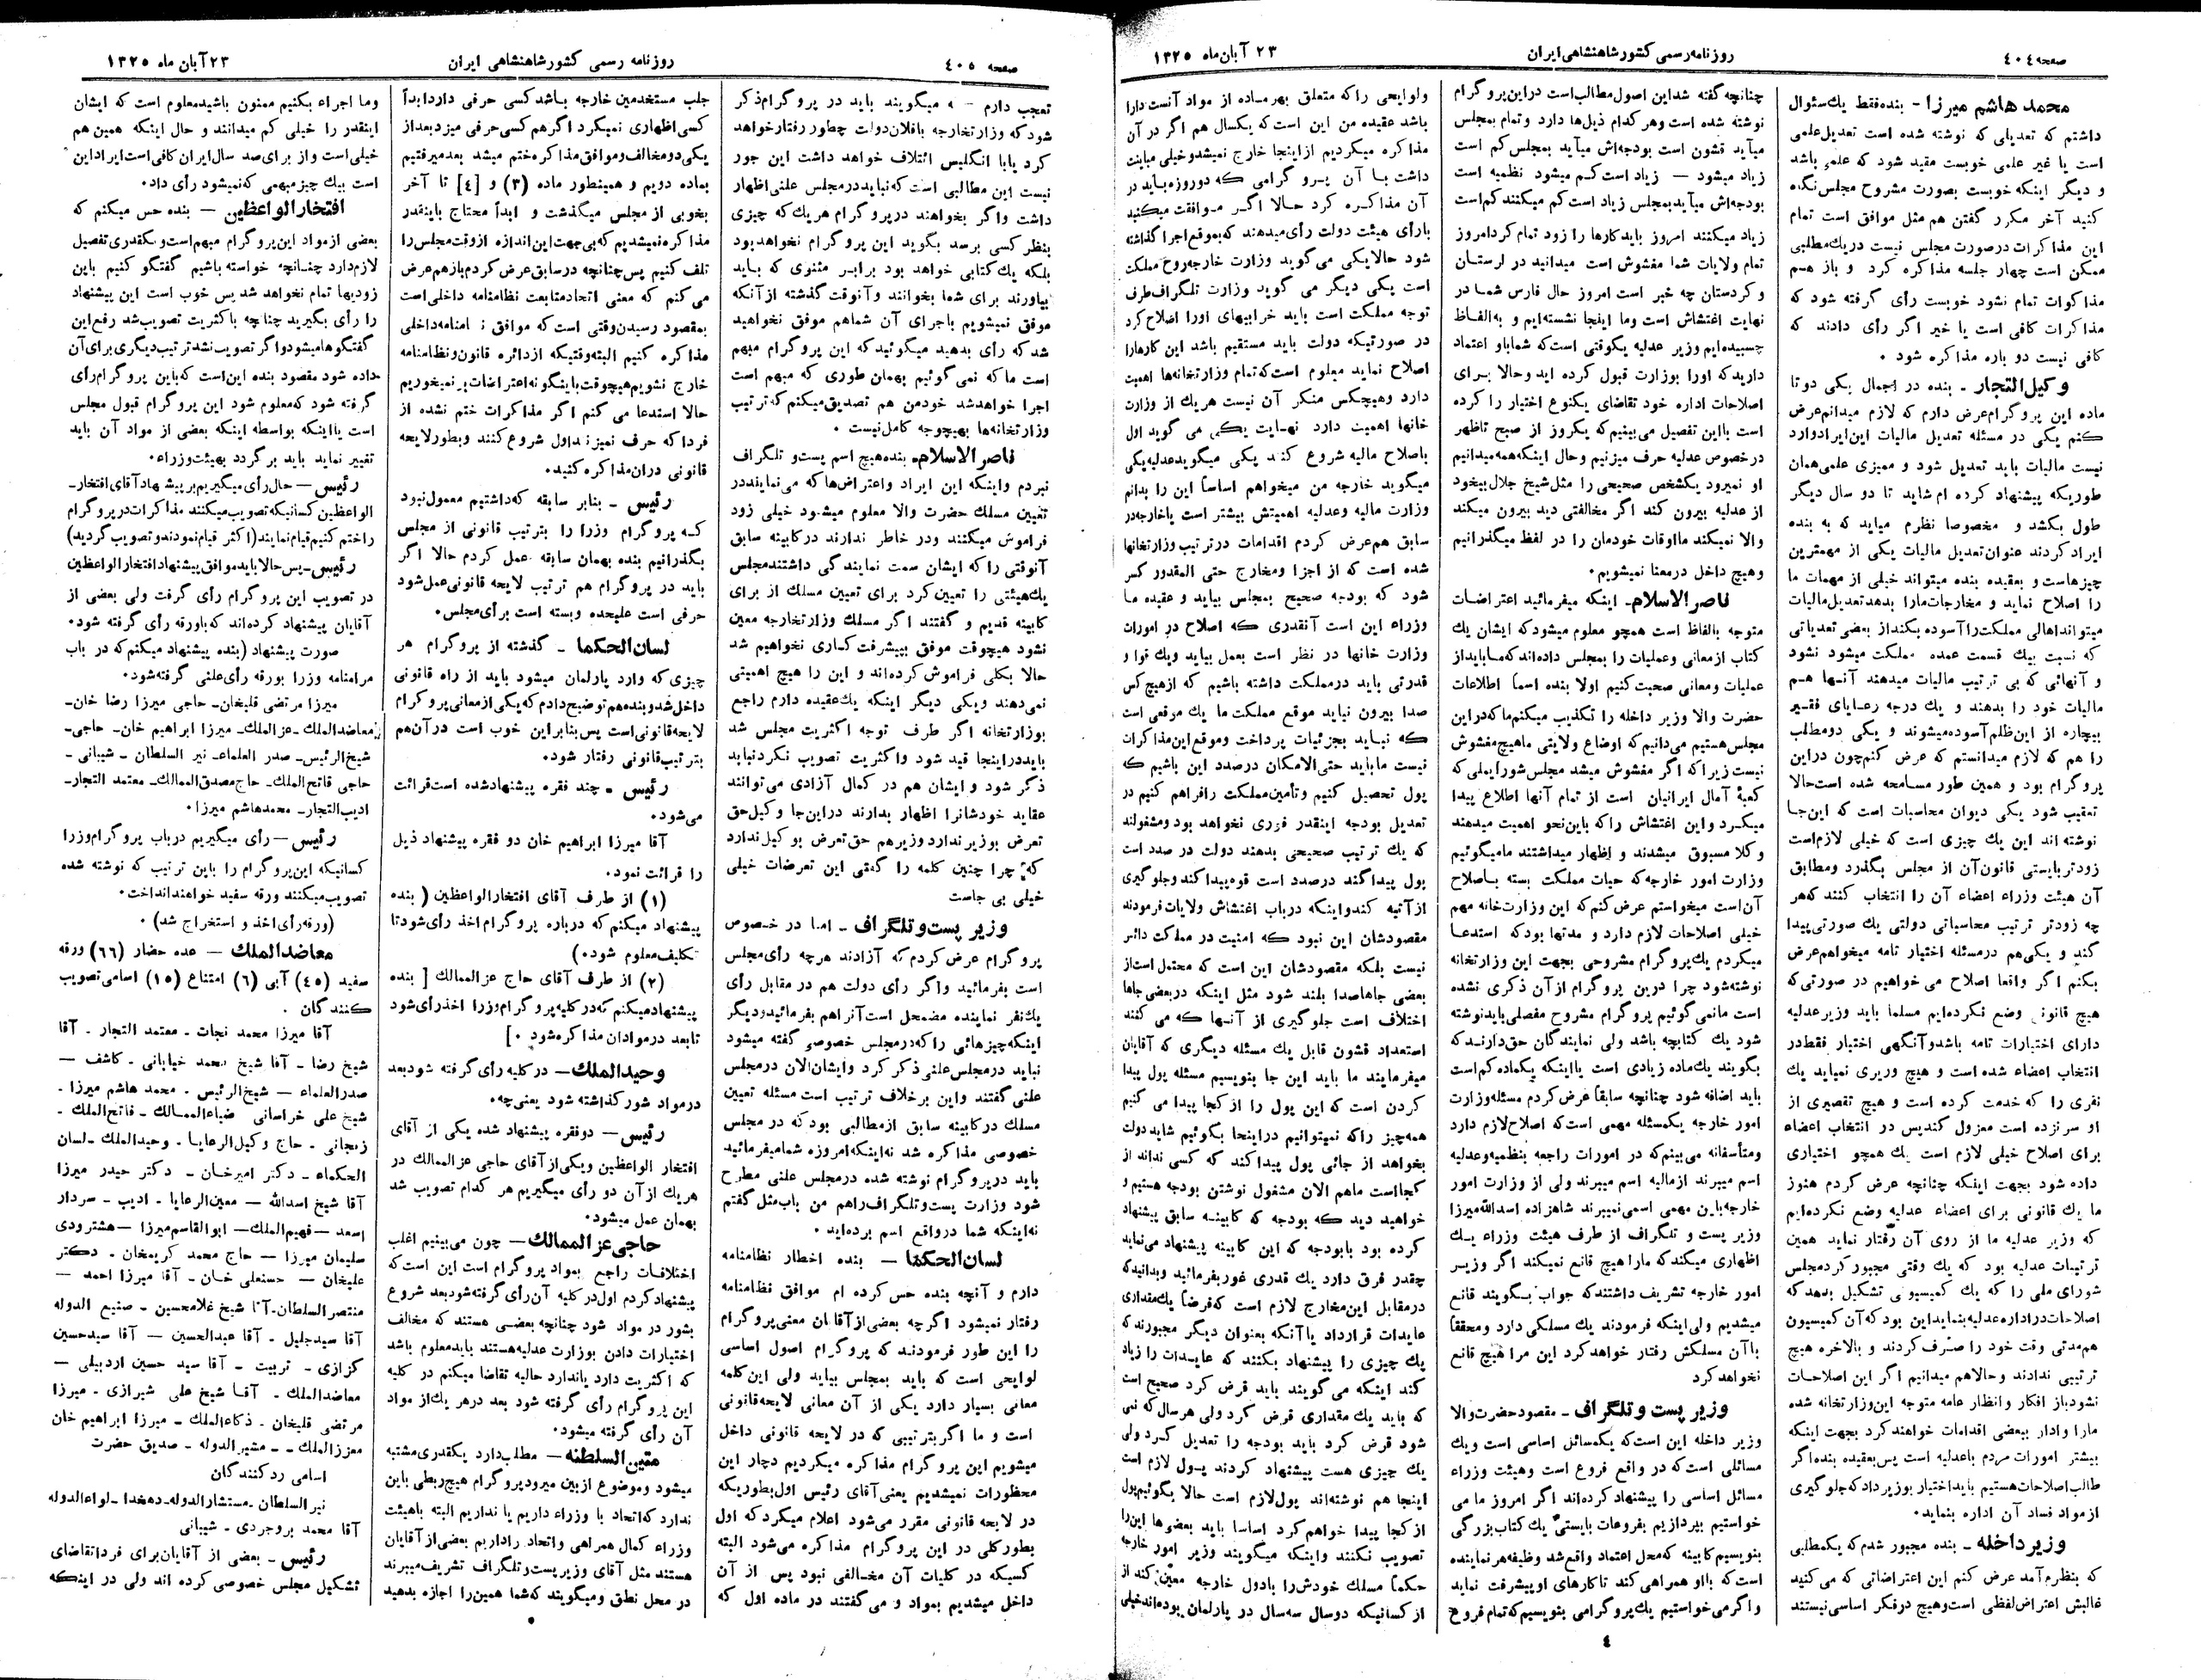 صفحه ۴۰۴
روزنامه رسمی کشور شاهنشاهی ایران
۲۳ آبان ماه ۱۳۲۵
محمد هاشم میرزا - بنده فقط یك سئوال
داشتم که تعدیلی که نوشته شده است تعدیل علمی
است یا غیر علمی خوبست مقید شود که علمی باشد
و دیگر اینکه خوبست بصورت مشروح مجلس نگاه
کنید آخر مکرر گفتن هم مثل موافق است تمام
این مذاکرات در صورت مجلس نیست در یك مطلبی
ممکن است چهار جلسه مذاکره کرد و باز هم
مذاکرات تمام نشود خوبست رأی گرفته شود که
مذاکرات کافی است یا خیر اگر رأی دادند که
کافی نیست دو باره مذاکره شود .
وکیل التجار - بنده در اجمال یکی دو تا
ماده این پروگرام عرض دارم که لازم میدانم عرض
کنم یکی در مسئله تعدیل مالیات این ایراد وارد
نیست مالیات باید تعدیل شود و ممیزی علمی همان
طوریکه پیشنهاد کرده ام شاید تا دو سال دیگر
طول بکشد و مخصوصا نظرم میاید که به بنده
ایراد کردند عنوان تعدیل مالیات یکی از مهمترین
چیزهاست و بعقیده بنده میتواند خیلی از مهمات ما
را اصلاح نماید و مخارجات ما را بدهد تعدیل مالیات
میتواند اهالی مملکت را آسوده بکند از بعضی تعدیاتی
که نسبت بیك قسمت عمده مملکت میشود نشود
و آنهائی که بی ترتیب مالیات میدهند آنها هم
مالیات خود را بدهند و یك درجه رعایای فقیر
بیچاره از این ظلم آسوده میشوند و یکی دو مطلب
را هم که لازم میدانستم که عرض کنم چون در این
پروگرام بود و همین طور مسامحه شده است حالا
تعقیب شود یکی دیوان محاسبات است که این جا
نوشته اند این یك چیزی است که خیلی لازم است
زودتر بایستی قانون آن از مجلس بگذرد و مطابق
آن هیئت وزراء اعضاء آن را انتخاب کنند که هر
چه زودتر ترتیب محاسباتی دولتی یك صورتی پیدا
کند و یکی هم در مسئله اختیار تامه میخواهم عرض
بکنم اگر واقعا اصلاح می خواهیم در صورتی که
هیچ قانونی وضع نکرده ایم مسلما باید وزیر عدلیه
دارای اختیارات تامه باشد و آنگهی اختیار فقط در
انتخاب اعضاء شده است و هیچ وزیری نمیاید یك
نفری را که خدمت کرده است و هیچ تقصیری از
او سر نزده است معزول کند پس در انتخاب اعضاء
برای اصلاح خیلی لازم است یك همچو اختیاری
داده شود بجهت اینکه چنانچه عرض کردم هنوز
ما یك قانونی برای اعضاء عدلیه وضع نکرده ایم
که وزیر عدلیه ما از روی آن رفتار نماید همین
ترتیبات عدلیه بود که یك وقتی مجبور کرد مجلس
شورای ملی را که یك کمیسیونی تشکیل بدهد که
اصلاحات در اداره عدلیه بنماید این بود که آن کمیسیون
هم مدتی وقت خود را صرف کردند و بالاخره هیچ
ترتیبی ندادند و حالا هم میدانیم اگر این اصلاحات
نشود باز افکار و انظار عامه متوجه این وزارتخانه شده
ما را وادار ببعضی اقدامات خواهند کرد بجهت اینکه
بیشتر امورات مردم با عدلیه است پس بعقیده بنده اگر
طالب اصلاحات هستیم باید اختیار بوزیر داد که جلوگیری
از مواد فساد آن اداره بنماید .
وزیر داخله - بنده مجبور شدم که یکمطلبی
که بنظرم آمد عرض کنم این اعتراضاتی که می کنید
غالبش اعتراض لفظی است و هیچ در فکر اساسی نیستند
چنانچه گفته شد این اصول مطالب است در این پروگرام
نوشته شده است و هر کدام ذیل ها دارد و تمام بمجلس
میآید قشون است بودجه اش میآید بمجلس کم است
زیاد میشود — زیاد است کم میشود نظمیه است
بودجه اش میآید بمجلس زیاد است کم میکنند کم است
زیاد میکنند امروز باید کارها را زود تمام کرد امروز
تمام ولایات شما مغشوش است میدانید در لرستان
و کردستان چه خبر است امروز حال فارس شما در
نهایت اغتشاش است و ما اینجا نشسته ایم و به الفاظ
چسبیده ایم وزیر عدلیه یکوقتی است که شما باو اعتماد
دارید که او را بوزارت قبول کرده اید و حالا برای
اصلاحات اداره خود تقاضای یکنوع اختیار را کرده
است با این تفصیل می بینم که یکروز از صبح تا ظهر
در خصوص عدلیه حرف میزنیم و حال اینکه همه میدانیم
او نمیرود یکشخص صحیحی را مثل شیخ جلال بیخود
از عدلیه بیرون کند اگر مخالفتی دید بیرون میکند
والا نمیکند ما اوقات خودمان را در لفظ میگذرانیم
و هیچ داخل در معنا نمیشویم .
ناصر الاسلام - اینکه میفرمائید اعتراضات
متوجه بالفاظ است همچو معلوم میشود که ایشان یك
کتاب از معانی و عملیات را بمجلس داده اند که ما باید از
عملیات و معانی صحبت کنیم اولا بنده اسما اطلاعات
حضرت والا وزیر داخله را تکذیب میکنم ما که در این
مجلس هستیم می دانیم که اوضاع ولایتی ما هیچ مغشوش
نیست زیرا که اگر مغشوش میشد مجلس شورایملی که
کعبۀ آمال ایرانیان است از تمام آنها اطلاع پیدا
میکرد و این اغتشاش را که باین نحو اهمیت میدهند
وکلا مسبوق میشدند و اظهار میداشتند ما میگوئیم
وزارت امور خارجه که حیات مملکت بسته باصلاح
آن است میخواستم عرض کنم که این وزارتخانه مهم
خیلی اصلاحات لازم دارد و مدتها بود که استدعا
میکردم یك پروگرام مشروحی بجهت این وزارتخانه
نوشته شود چرا درین پروگرام از آن ذکری نشده
است ما نمی گوئیم پروگرام مشروح مفصلی باید نوشته
شود یك کتابچه باشد ولی نمایندگان حق دارند که
بگویند یك ماده زیادی است یا اینکه یکماده کم است
باید اضافه شود چنانچه سابقا عرض کردم مسئله وزارت
امور خارجه یکمسئله مهمی است که اصلاح لازم دارد
و متأسفانه می بینم که در امورات راجعه بنظمیه و عدلیه
اسم میبرند از مالیه اسم میبرند ولی از وزارت امور
خارجه باین مهمی اسمی نمیبرند شاهزاده اسدالله میرزا
وزیر پست و تلگراف از طرف هیئت وزراء یك
اظهاری میکند که ما را هیچ قانع نمیکند اگر وزیر
امور خارجه تشریف داشتند که جواب بگویند قانع
میشدیم ولی اینکه فرمودند یك مسلکی دارد و محققا
با آن مسلکش رفتار خواهد کرد این مرا هیچ قانع
نخواهد کرد
وزیر پست و تلگراف - مقصود حضرت والا
وزیر داخله این است که یکمسائل اساسی است و یك
مسائلی است که در واقع فروع است و هیئت وزراء
مسائل اساسی را پیشنهاد کرده اند اگر امروز ما می
خواستیم بپردازیم بفروعات بایستی یك کتاب بزرگی
بنویسیم کابینه که محل اعتماد واقع شد وظیفه هر نماینده
است که با او همراهی کند تا کارهای او پیشرفت نماید
و اگر می خواستیم یك پروگرامی بنویسیم که تمام فروع
ولوایحی را که متعلق بهر ماده از مواد آنست دارا
باشد عقیده من این است که یکسال هم اگر در آن
مذاکره میکردیم از اینجا خارج نمیشد و خیلی مباینت
داشت با آن پروگرامی که دو روزه باید در
آن مذاکره کرد حالا اگر موافقت میکنید
با رأی هیئت دولت رأی میدهند که بموقع اجرا گذاشته
شود حالا یکی می گوید وزارت خارجه روح مملکت
است یکی دیگر می گوید وزارت تلگراف طرف
توجه مملکت است باید خرابیهای او را اصلاح کرد
در صورتیکه دولت باید مستقیم باشد این کارها را
اصلاح نماید معلوم است که تمام وزارتخانه ها اهمیت
دارد و هیچکس منکر آن نیست هر یك از وزارت
خانها اهمیت دارد نهایت یکی می گوید اول
باصلاح مالیه شروع کند یکی میگوید عدلیه یکی
میگوید خارجه من میخواهم اساسا این را بدانم
وزارت مالیه و عدلیه اهمیتش بیشتر است یا خارجه در
سابق هم عرض کردم اقدامات در ترتیب وزارتخانها
شده است که از اجزا و مخارج حتی المقدور کسر
شود که بودجه صحیح بمجلس بیاید و عقیده ما
وزراء این است آنقدری که اصلاح در امورات
وزارت خانها در نظر است بعمل بیاید و یك قوا و
قدرتی باید در مملکت داشته باشیم که از هیچ کس
صدا بیرون نیاید موقع مملکت ما یك مرقعی است
که نباید بجزئیات پرداخت و موقع این مذاکرات
نیست ما باید حتی الامکان درصدد این باشیم که
پول تحصیل کنیم و تأمین مملکت را فراهم کنیم در
تعدیل بودجه اینقدر فرری نخواهد بود و مشغولند
که یك ترتیب صحیحی بدهند دولت در صدد است
پول پیدا کند درصدد است قوه پیدا کند و جلوگیری
از آتیه کند و اینکه در باب اغتشاش ولایات فرمودند
مقصودشان این نبود که امنیت در مملکت دائر
نیست بلکه مقصودشان این است که محتمل است از
بعضی جاها صدا بلند شود مثل اینکه در بعضی جاها
اختلاف است جلوگیری از آنها که می کنند
استعداد قشون قابل یك مسئله دیگری که آقایان
میفرمایند ما باید این جا بنویسیم مسئله پول پیدا
کردن است که این پول را از کجا پیدا می کنیم
همه چیز را که نمیتوانیم در اینجا بگوئیم شاید دولت
بخواهد از جائی پول پیدا کند که کسی نداند از
کجااست ما هم الان مشغول نوشتن بودجه هستیم و
خواهید دید که بودجه که کابینه سابق پیشنهاد
کرده بود با بودجه که این کابینه پیشنهاد می نماید
چقدر فرق دارد یك قدری غور بفرمائید و بدانید که
در مقابل این مخارج لازم است که فرضا یك مقداری
عایدات قرارداد یا آنکه بعنوان دیگر مجبورند که
یك چیزی را پیشنهاد بکنند که عایدات را زیاد
کند اینکه می گویند باید قرض کرد صحیح است
که باید یك مقداری قرض کرد ولی هر سال که نمی
شود قرض کرد باید بودجه را تعدیل کرد ولی
یك چیزی هست پیشنهاد کردند پول لازم است
اینجا هم نوشته اند پول لازم است حالا بگوئیم پول
از کجا پیدا خواهم کرد اساسا باید بعضی ها این را
تصویب نکنند و اینکه میگویند وزیر امور خارجه
حکما مسلك خودش را با دول خارجه معین کند از
از کسانیکه دو سال سه سال در پارلمان بوده اند خیلی
۴
صفحه ۴۰۵
روزنامه رسمی کشور شاهنشاهی ایران
۲۳ آبان ماه ۱۳۲۵
تعجب دارم - که میگویند باید در پروگرام ذکر
شود که وزارتخارجه با فلان دولت چطور رفتار خواهد
کرد یا با انگلیس ائتلاف خواهد داشت این جور
نیست این مطالبی است که نباید در مجلس علنی اظهار
داشت و اگر بخواهند در پروگرام هر یك که چیزی
بنظر کسی برسد بگوید این پروگرام نخواهد بود
بلکه یك کتابی خواهد بود برابر مثنوی که باید
بیاورند برای شما بخوانند و آنوقت گذشته از آنکه
موفق نمیشویم باجرای آن شما هم موفق نخواهید
شد که رأی بدهید میگوئید که این پروگرام مبهم
است ما که نمی گوئیم بهمان طوری که مبهم است
اجرا خواهد شد خود من هم تصدیق میکنم که ترتیب
وزارتخانه ها بهیچوجه کامل نیست .
ناصر الاسلام - بنده هیچ اسم پست و تلگراف
نبردم و اینکه این ایراد و اعتراض ها که می نمایند در
تعیین مسلك حضرت والا معلوم میشود خیلی زود
فراموش میکنند و در خاطر ندارند در کابینه سابق
آنوقتی را که ایشان سمت نمایندگی داشتند مجلس
یك هیئتی را تعیین کرد برای تعیین مسلك از برای
کابینه قدیم و گفتند اگر مسلك وزارتخارجه معین
نشود هیچوقت موفق بپیشرفت کاری نخواهیم شد
حالا بکلی فراموش کرده اند و این را هیچ اهمیتی
نمی دهند و یکی دیگر اینکه یك عقیده دارم راجع
بوزارتخانه اگر طرف توجه اکثریت مجلس شد
باید در اینجا قید شود و اکثریت تصویب نکرد نباید
ذکر شود و ایشان هم در کمال آزادی می توانند
عقاید خودشان را اظهار بدارند در این جا وکیل حق
تعرض بوزیر ندارد وزیر هم حق تعرض بوکیل ندارد
که چرا چنین کلمه را گفتی این تعرضات خیلی
خیلی بی جاست
وزیر پست و تلگراف - اما در خصوص
پروگرام عرض کردم که آزادند هر چه رأی مجلس
است بفرمائید و اگر رأی دولت هم در مقابل رأی
یك نفر نماینده مضمحل است آنرا هم بفرمائید و دیگر
اینکه چیزهائی را که در مجلس خصوصی گفته میشود
نباید در مجلس علنی ذکر کرد و ایشان الان در مجلس
علنی گفتند و این بر خلاف ترتیب است مسئله تعیین
مسلك در کابینه سابق از مطالبی بود که در مجلس
خصوصی مذاکره شد نه اینکه امروزه شما میفرمائید
باید در پروگرام نوشته شده در مجلس علنی مطرح
شود وزارت پست و تلگراف را هم من باب مثل گفتم
نه اینکه شما در واقع اسم برده اید .
لسان الحکما — بنده اخطار نظامنامه
دارم و آنچه بنده حس کرده ام موافق نظامنامه
رفتار نمیشود اگر چه بعضی از آقایان معنی پروگرام
را این طور فرمودند که پروگرام اصول اساسی
لوایحی است که باید بمجلس بیاید ولی این کلمه
معانی بسیار دارد یکی از آن معانی لایحه قانونی
است و ما اگر بترتیبی که در لایحه قانونی داخل
میشویم این پروگرام مذاکره میکردیم دچار این
محظورات نمیشدیم یعنی آقای رئیس اول بطوریکه
در لایحه قانونی مقرر می شود اعلام میکرد که اول
بطور کلی در این پروگرام مذاکره می شود البته
کسیکه در کلیات آن مخالفی نبود پس از آن
داخل میشدیم بمواد و می گفتند در ماده اول که
جلب مستخدمین خارجه باشد کسی حرفی دارد ابدا
کسی اظهاری نمیکرد اگر هم کسی حرفی میزد بعد از
یکی دو مخالف و موافق مذاکره ختم میشد بعد میرفتیم
بماده دویم و همینطور ماده (۳) و [۴] تا آخر
بخوبی از مجلس میگذشت و ابدا محتاج باینقدر
مذاکره نمیشدیم که بی جهت این اندازه از وقت مجلس را
تلف کنیم پس چنانچه در سابق عرض کردم باز هم عرض
می کنم که معنی اتحاد متابعت نظامنامه داخلی است
بمقصود رسیدن وقتی است که موافق نظامنامه داخلی
مذاکره کنیم البته وقتیکه از دائره قانون و نظامنامه
خارج نشویم هیچوقت باینگونه اعتراضات بر نمیخوریم
حالا استدعا می کنم اگر مذاکرات ختم نشده از
فردا که حرف نمیزند اول شروع کنند و بطور لایحه
قانونی در ان مذاکره کنید .
رئیس - بنابر سابقه که داشتیم معمول نبود
که پروگرام وزرا را بترتیب قانونی از مجلس
بگذرانیم بنده بهمان سابقه عمل کردم حالا اگر
باید در پروگرام هم ترتیب لایحه قانونی عمل شود
حرفی است علیحده و بسته است برأی مجلس .
لسان الحکما - گذشته از پروگرام هر
چیزی که وارد پارلمان میشود باید از راه قانونی
داخل شد و بنده هم توضیح دادم که یکی از معانی پروگرام
لایحه قانونی است پس بنابر این خوب است در آن هم
بترتیب قانونی رفتار شود .
رئیس - چند فقره پیشنهاد شده است قرائت
می شود .
آقا میرزا ابراهیم خان دو فقره پیشنهاد ذیل
را قرائت نمود .
(۱) از طرف آقای افتخار الواعظین ( بنده
پیشنهاد میکنم که درباره پروگرام اخذ رأی شود تا
تکلیف معلوم شود .)
(۲) از طرف آقای حاج عز الممالك [ بنده
پیشنهاد میکنم که در کلیه پروگرام وزرا اخذ رأی شود
تا بعد در مواد ان مذاکره شود .]
وحید الملك — در کلیه رأی گرفته شود بعد
در مواد شور گذاشته شود یعنی چه .
رئیس — دو فقره پیشنهاد شده یکی از آقای
افتخار الواعظین و یکی از آقای حاجی عز الممالك در
هر یك از آن دو رأی میگیریم هر کدام تصویب شد
بهمان عمل میشود .
حاجی عز الممالك — چون می بینیم اغلب
اختلافات راجع بمواد پروگرام است این است که
پیشنهاد کردم اول در کلیه آن رأی گرفته شود بعد شروع
بشور در مواد شود چنانچه بعضی هستند که مخالف
اختیارات دادن بوزارت عدلیه هستند باید معلوم باشد
که اکثریت دارد یا ندارد حالیه تقاضا میکنم در کلیه
این پروگرام رأی گرفته شود بعد در هر یك از مواد
آن رأی گرفته میشود .
متین السلطنه — مطلب دارد یکقدری مشتبه
میشود و موضوع از بین میرود پروگرام هیچ ربطی باین
ندارد که اتحاد با وزراء داریم یا نداریم البته با هیئت
وزراء کمال همراهی و اتحاد را داریم بعضی از آقایان
هستند مثل آقای وزیر پست و تلگراف تشریف میبرند
در محل نطق و میگویند که شما همین را اجازه بدهید
وما اجراء بکنیم ممنون باشید معلوم است که ایشان
اینقدر را خیلی کم میدانند و حال اینکه همین هم
خیلی است و از برای صد سال ایران کافی است ایراد این
است بیك چیز مبهمی که نمیشود رأی داد .
افتخار الواعظین — بنده حس میکنم که
بعضی از مواد این پروگرام مبهم است و یکقدری تفصیل
لازم دارد چنانچه خواسته باشیم گفتگو کنیم باین
زودیها تمام نخواهد شد پس خوب است این پیشنهاد
را رأی بگیرید چنانچه باکثریت تصویب شد رفع این
گفتگوها میشود و اگر تصویب نشد ترتیب دیگری برای آن
داده شود مقصود بنده این است که باین پروگرام رأی
گرفته شود که معلوم شود این پروگرام قبول مجلس
است یا اینکه بواسطه اینکه بعضی از مواد آن باید
تغییر نماید باید بر گردد بهیئت وزراء .
رئیس — حال رأی میگیریم بر پیشنهاد آقای افتخار -
الواعظین کسانیکه تصویب میکنند مذاکرات در پروگرام
را ختم کنیم قیام نمایند (اکثر قیام نمودند و تصویب گردید)
رئیس - پس حالا باید موافق پیشنهاد افتخار الواعظین
در تصویب این پروگرام رأی گرفت ولی بعضی از
آقایان پیشنهاد کرده اند که باورقه رأی گرفته شود .
صورت پیشنهاد (بنده پیشنهاد میکنم که در باب
مرامنامه وزرا بورقه رأی علنی گرفته شود .
میرزا مرتضی قلیخان - حاجی میرزا رضا خان -
معاضد الملك - عز الملك - میرزا ابراهیم خان - حاجی -
شیخ الرئیس - صدر العلماء - نیر السلطان - شیبانی -
حاجی فاتح الملك - حاج مصدق الممالك - معتمد التجار -
ادیب التجار - محمد هاشم میرزا .
رئیس — رأی میگیریم در باب پروگرام وزرا
کسانیکه این پروگرام را باین ترتیب که نوشته شده
تصویب میکنند ورقه سفید خواهند انداخت .
(ورقه رأی اخذ و استخراج شد) .
معاضد الملك — عده حضار (۶۶) ورقه
سفید (۴۵) آبی (۶) امتناع (۱۵) اسامی تصویب
کنندگان .
آقا میرزا محمد نجات - معتمد التجار - آقا
شیخ رضا - آقا شیخ محمد خیابانی - کاشف —
صدر العلماء — شیخ الرئیس - محمد هاشم میرزا -
شیخ علی خراسانی ضیاء الممالك - فاتح الملك -
زنجانی - حاج وکیل الرعایا - وحید الملك - لسان
الحکماء - دکتر امیر خان - دکتر حیدر میرزا
آقا شیخ اسدالله — معین الرعایا - ادیب - سردار
اسعد — فهیم الملك — ابوالقاسم میرزا — هشترودی
سلیمان میرزا — حاج محمد کریمخان - دکتر
علیخان — حسنعلی خان - آقا میرزا احمد —
منتصر السلطان - آقا شیخ غلامحسین - صنیع الدوله
آقا سید جلیل - آقا عبدالحسین — آقا سید حسین
کزازی - تربیت - آقا سید حسین اردبیلی —
معاضد الملك - آقا شیخ علی شیرازی - میرزا
مرتضی قلیخان - ذکاء الملك - میرزا ابراهیم خان
معزز الملك - - مشیر الدوله - صدیق حضرت
اسامی رد کنندگان
نیر السلطان - مستشار الدوله - دهخدا - لواء الدوله
آقا محمد بروجردی - شیبانی
رئیس - بعضی از آقایان برای فردا تقاضای
تشکیل مجلس خصوصی کرده اند ولی در اینکه